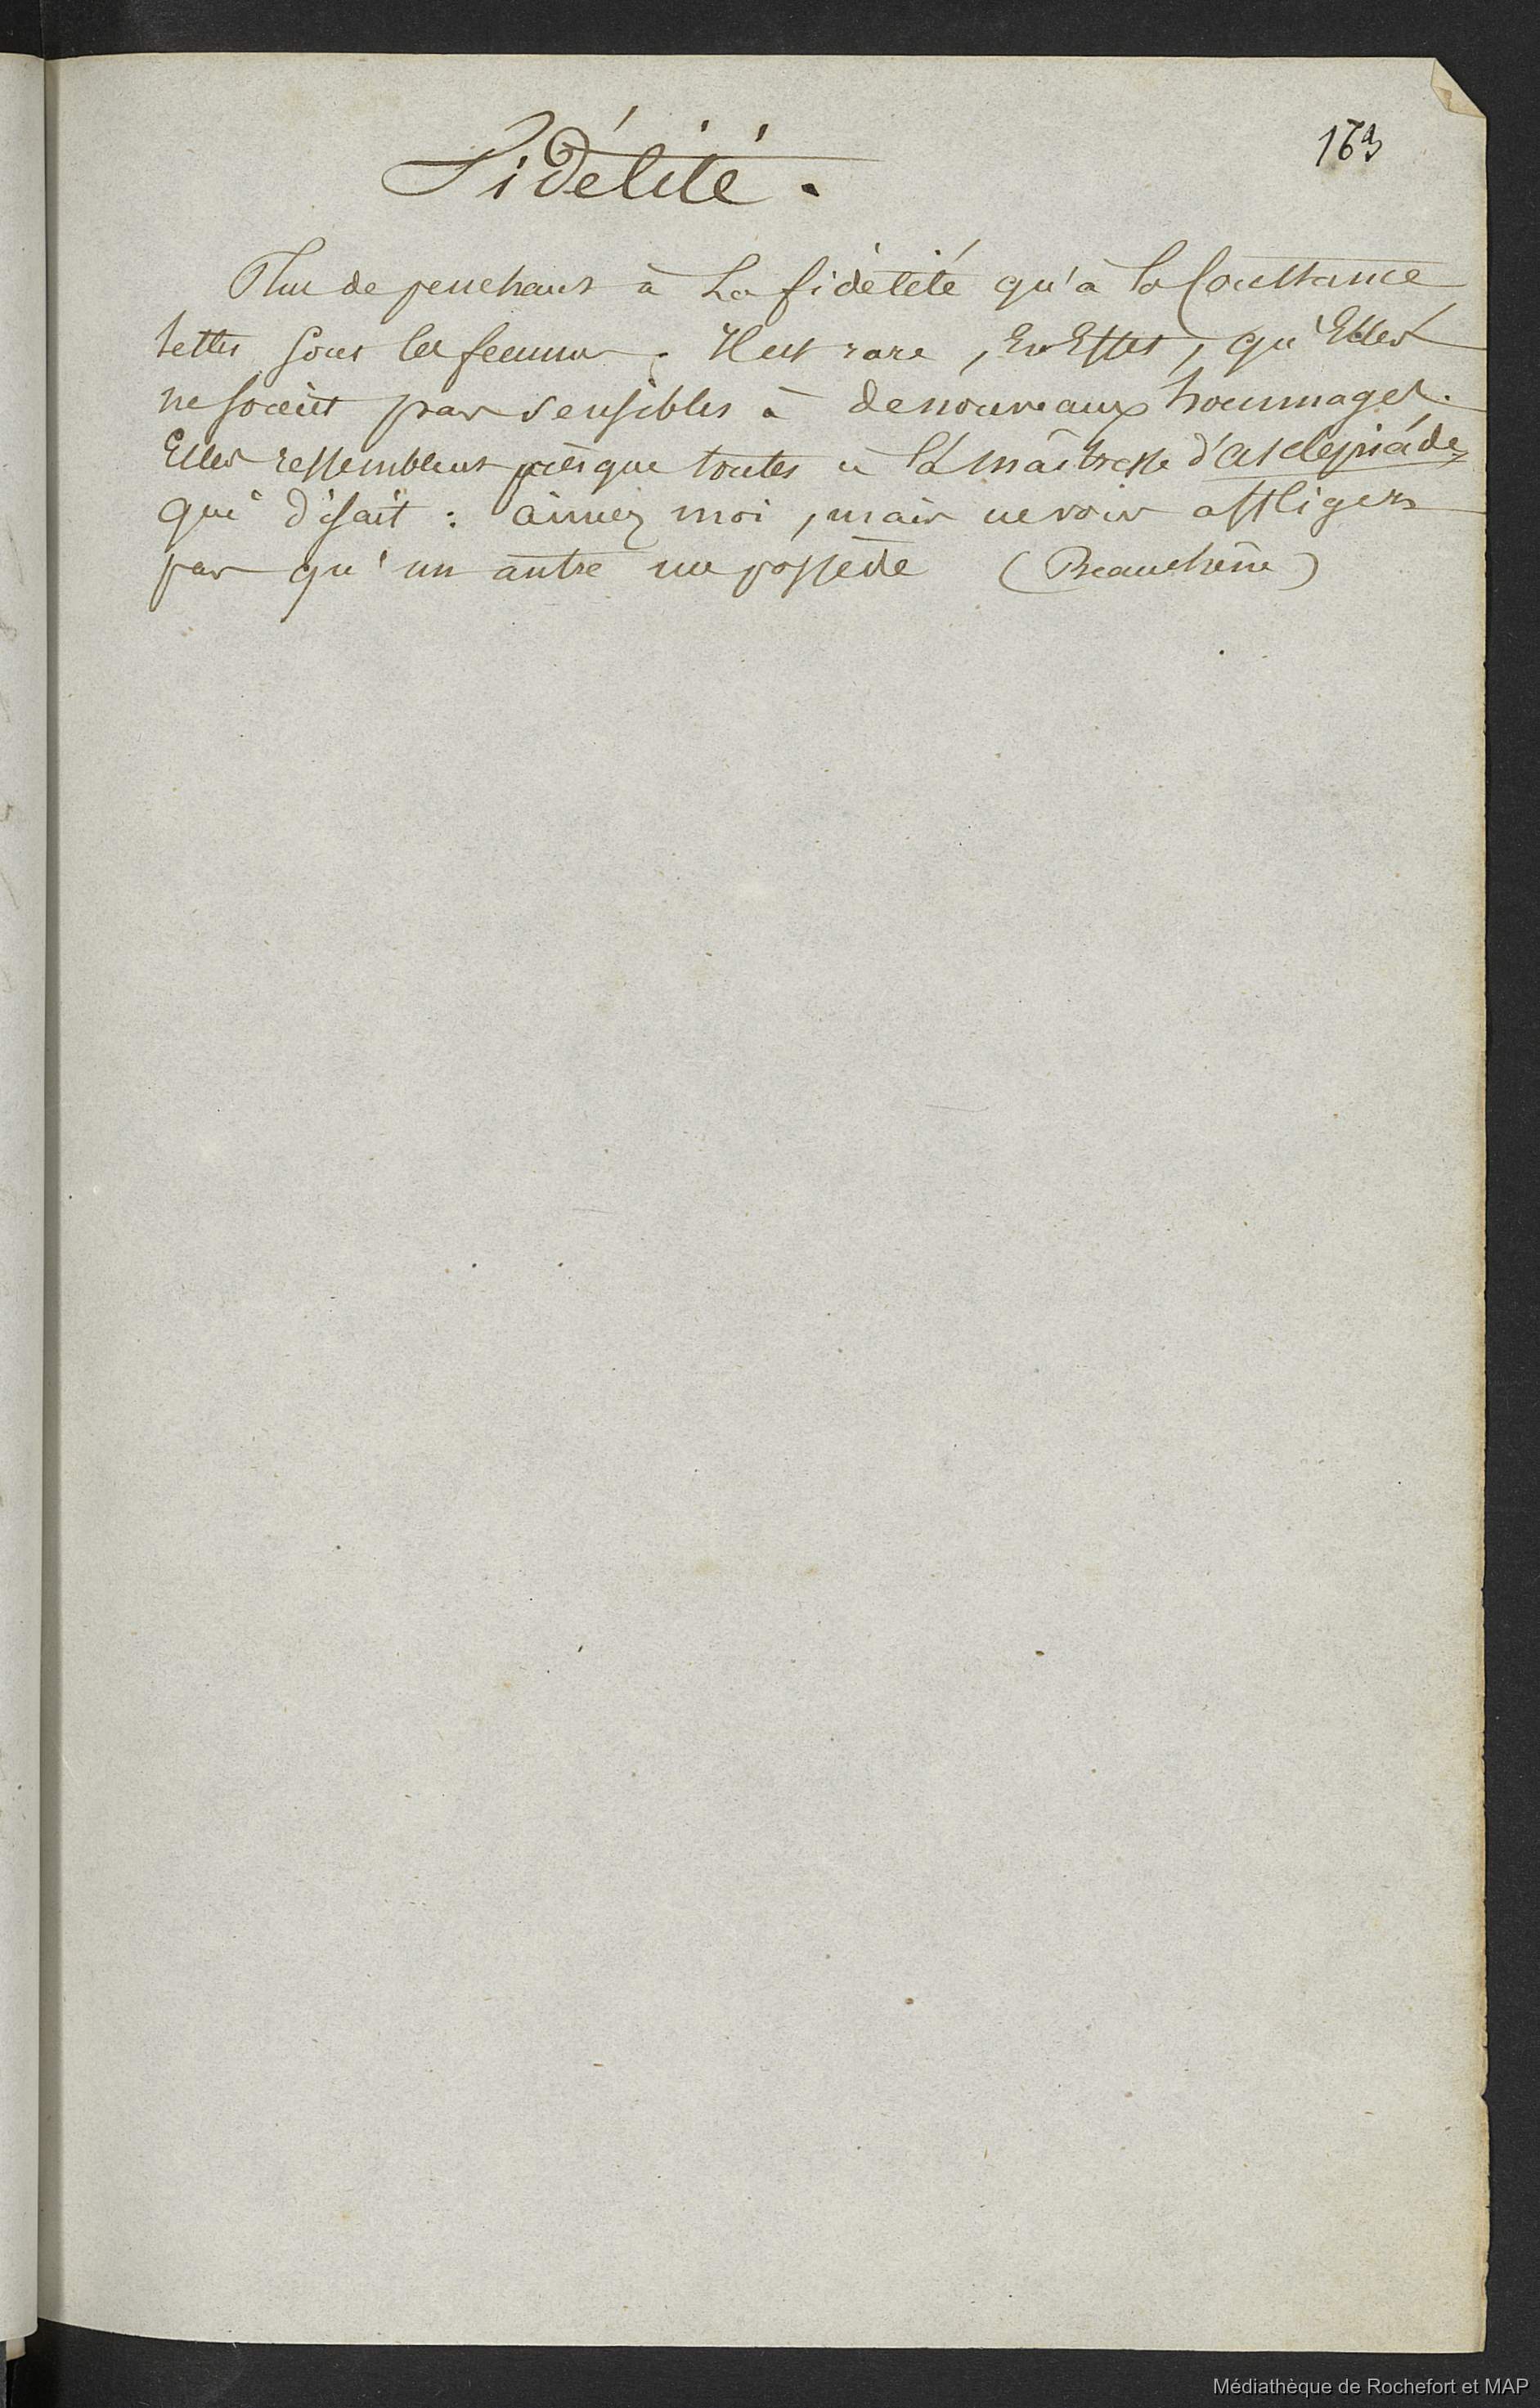 Fidélité.
163
Plus de penchant à la fidélité qu'à la Constance
telles sont les femmes. Il est rare, En Effet, qu'Elles
ne soient pas sensibles à de nouveaux hommages.
Elles ressemblent presque toutes à la maîtresse d'asclépiade,
qui disait : aimez moi, mais ne vous affligez
pas qu'un autre me possède (Beauchêne)
Médiathèque de Rochefort et MAP